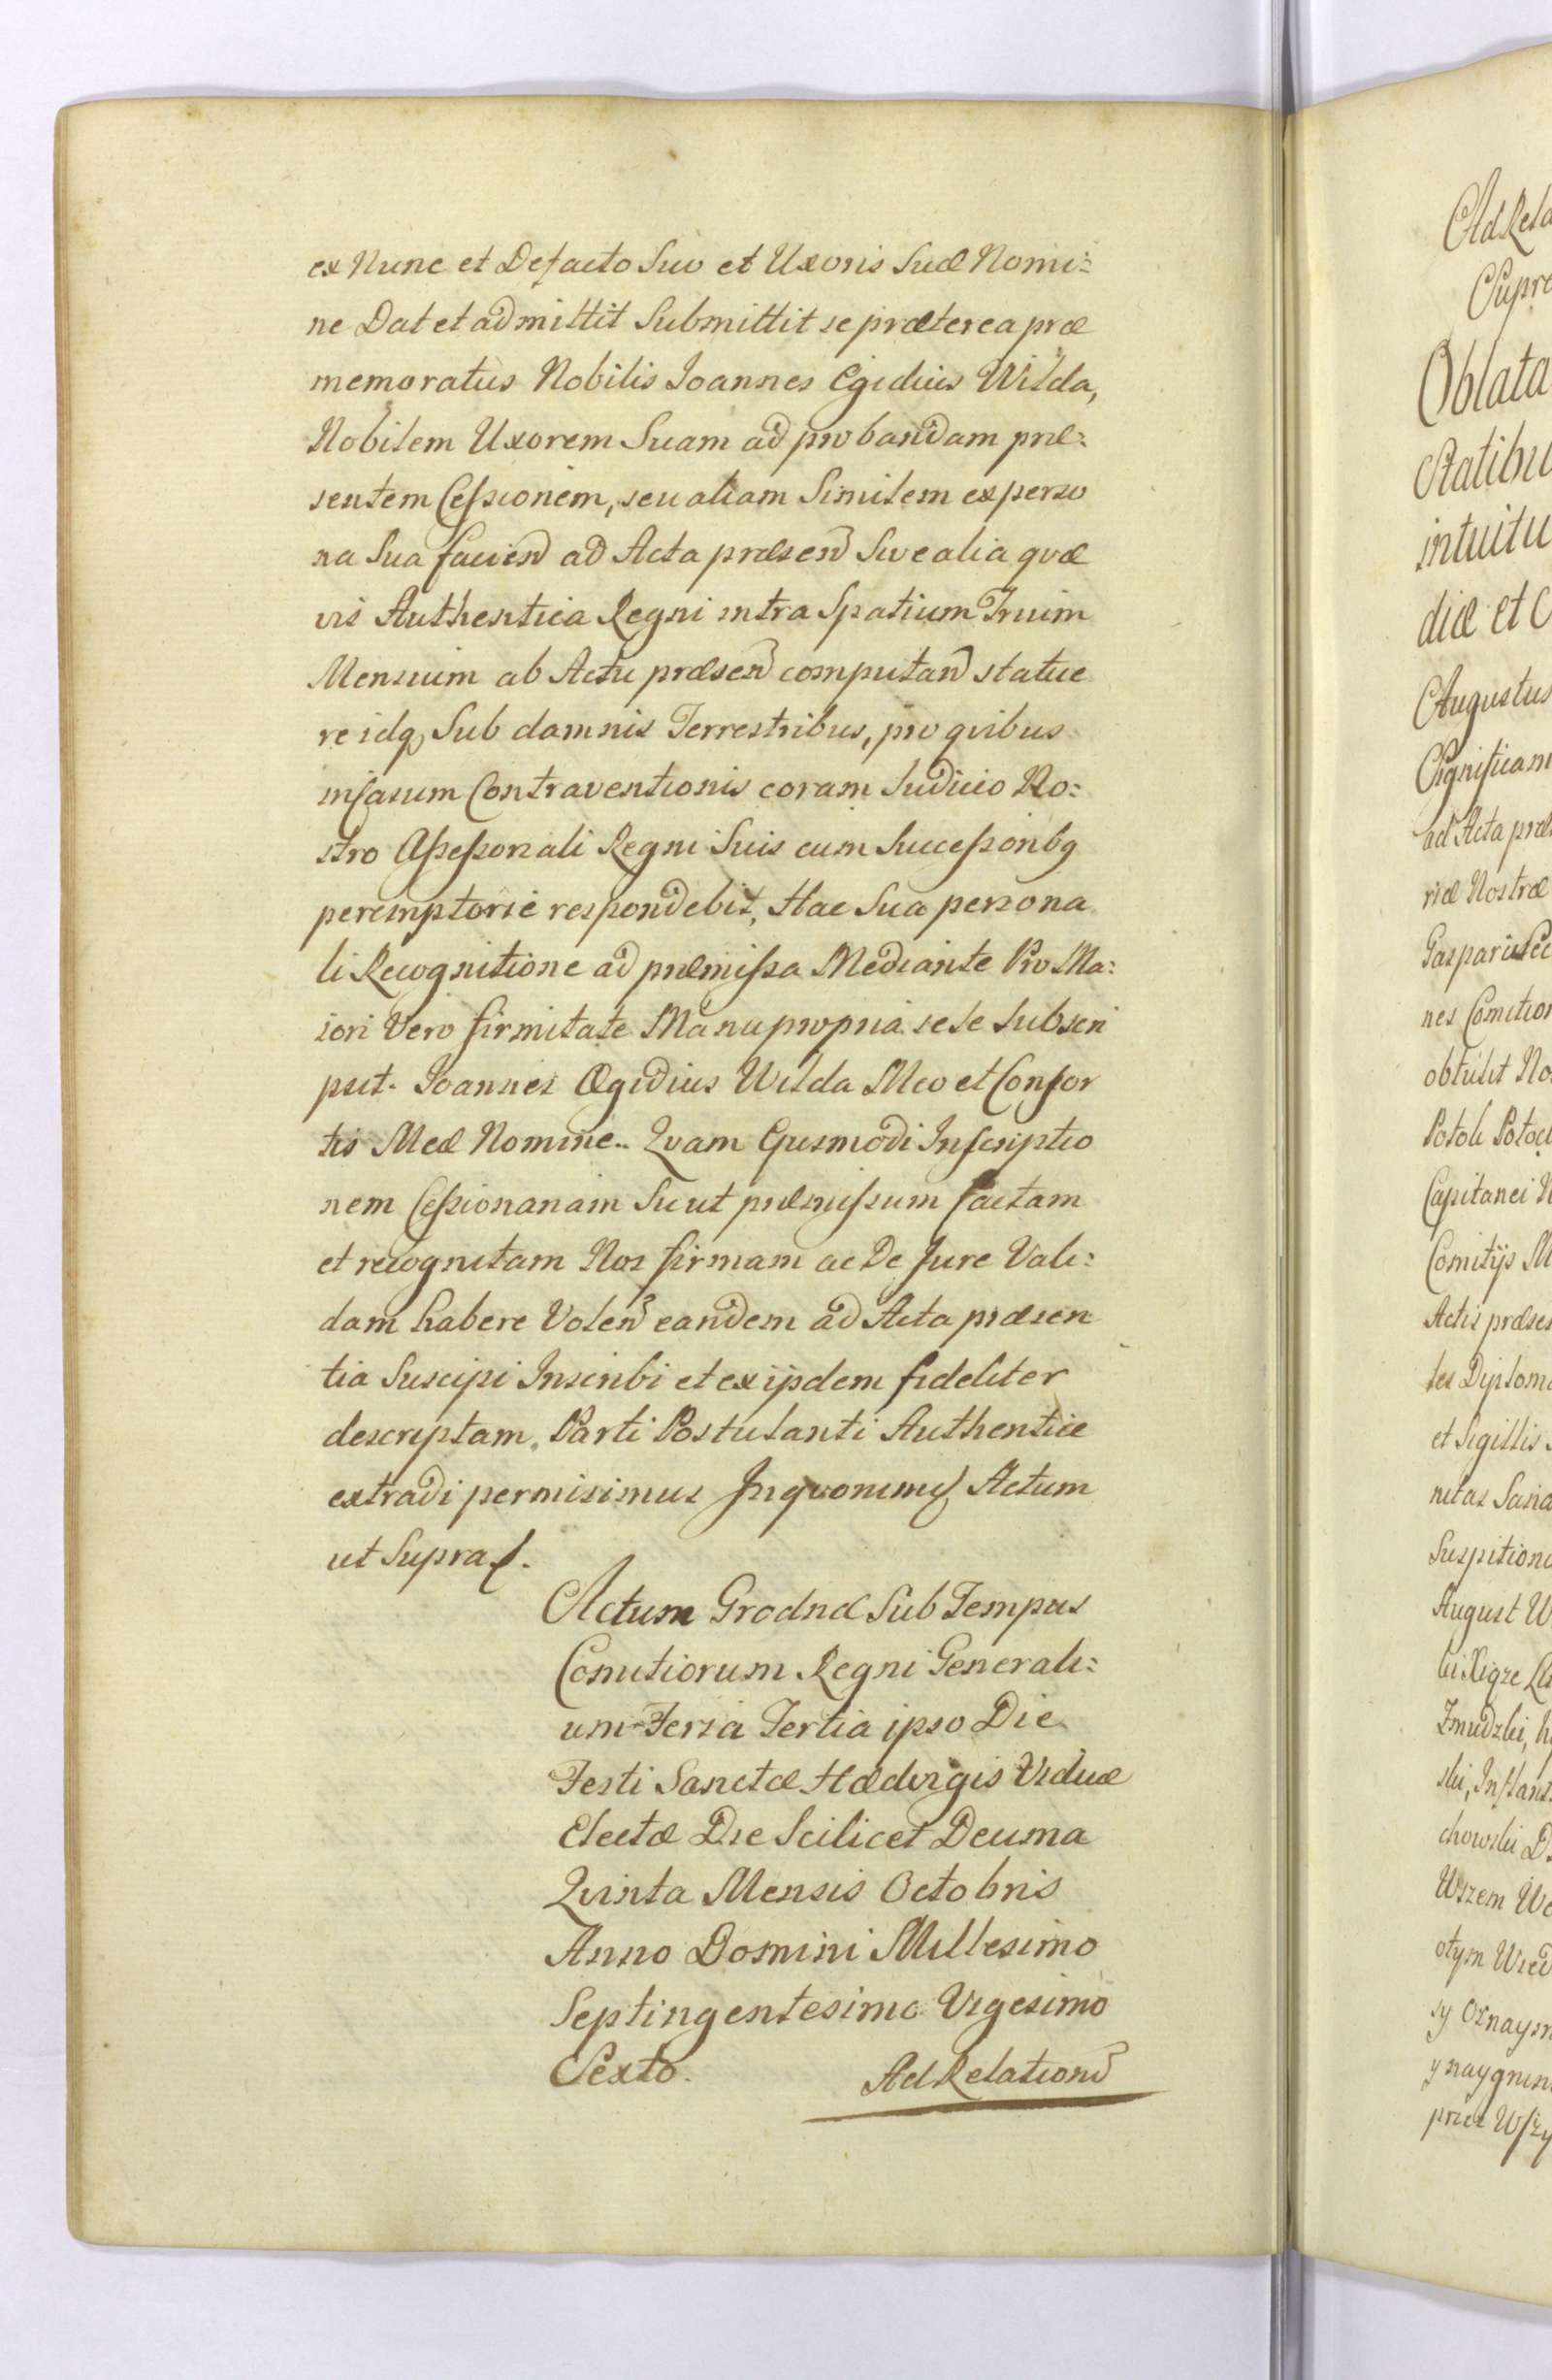 ex Nunc et Defacto Suo et Uxoris Suæ Nomi:
ne Dat et admittit Submittit se præterea præ
memoratus Nobilis Joannes Egidius Wilda,
Nobilem Uxorem Suam ad probandam præ:
sentem Cessionem, seu aliam Similem ex perso
na Sua faciend ad Acta præsend Sive alia quæ
vis Authentica Regni intra Spatium Trium
Mensium ab Actu præsend computand statue
re idq Sub damnis Terrestribus, pro quibus
in casum Contraventionis coram Judicio No:
stro Assessoriali Regni Suis cum Successoribq
peremptorie respondebit, Hac Sua persona
li Recognitione ad præmissa Mediante Pro Ma:
iori Vero firmitate Manu propria sese Subscri
psit. Joannes Ægidius Wilda Meo et Consor
tis Meæ Nomine. Quam Ejusmodi Inscriptio
nem Cessionariam Sicut præmissum factam
et recognitam Nos firmam ac De Jure Vali:
dam habere Volend eandem ad Acta præsen
tia Suscipi Inscribi et ex ijsdem fideliter
descriptam, Parti Postulanti Authentice
extradi permisimus In quorum Actum
ut Supra.
Actum Grodnæ Sub Tempus
Comitiorum Regni Generali:
um Feria Tertia ipso Die
Festi Sanctæ Hædvigis Viduæ
Electæ Die Scilicet Decima
Quinta Mensis Octobris
Anno Domini Millesimo
Septingentesimo Vigesimo
Sexto. Ad Relationd
Ad Rela
Supre
Oblata
Statibu
intuitu
diæ et C
Augustus
Significam
ad Acta præs
riæ Nostræ
Gasparis
nes Comition
obtulit No
Potok Potoc
Capitanei
Comitijs M
Actis præse
tes Diploma
et Sigillis
nitas Sana
Suspitioni
August W
ki Xiąze Li
Zmudzki,
ski, Inflant
chowski
Wszem
otym Wied
sy Oznaym
y nay
przez Wszy